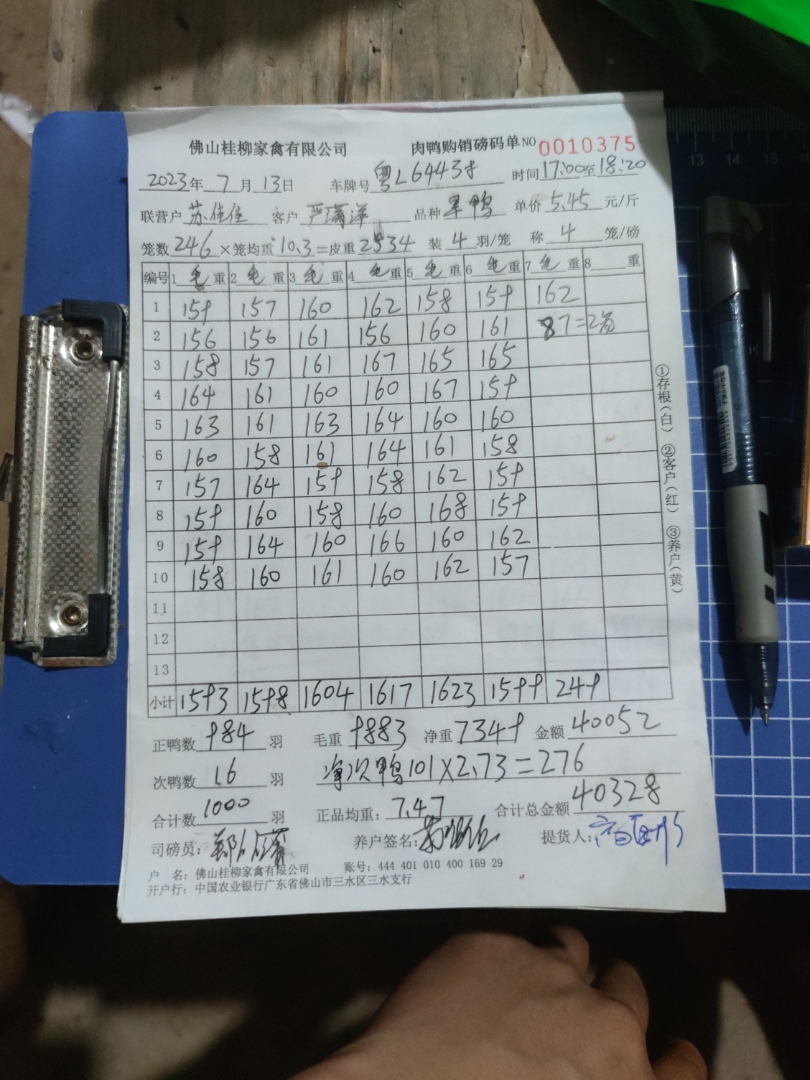 佛山桂柳家禽有限公司 肉鸭购销磅码单 NO 0010375
2023年 7月 13日 车牌号 粤L64439 时间 17:00至18:20
联营户 苏佳佳 客户 严潇洋 品种 旱鸭 单价 5.45 元/斤
笼数 246 ×笼均重 10.3 =皮重 2534 装 4 羽/笼 称 4 笼/磅
编号 1 毛 重 2 毛 重 3 毛 重 4 毛 重 5 毛 重 6 毛 重 7 毛 重 8 重
1 159 157 160 162 158 159 162
2 156 156 161 156 160 161 87=2笼
3 158 157 161 167 165 165
4 164 161 160 160 167 159
5 163 161 163 164 160 160
6 160 158 161 164 161 158
7 157 164 159 158 162 159
8 159 160 158 160 168 159
9 159 164 160 166 160 162
10 158 160 161 160 162 157
11
12
13
小计 1593 1598 1604 1617 1623 1599 249
正鸭数 984 羽 毛重 9883 净重 7349 金额 40052
次鸭数 16 羽 净次鸭101×2.73=276
合计数 1000 羽 正品均重: 7.47 合计总金额 40328
司磅员: 养户签名: 提货人:
户 名: 佛山桂柳家禽有限公司 账号: 444 401 010 400 169 29
开户行: 中国农业银行广东省佛山市三水区三水支行
①存根(白) ②客户(红) ③养户(黄)
13 14 15